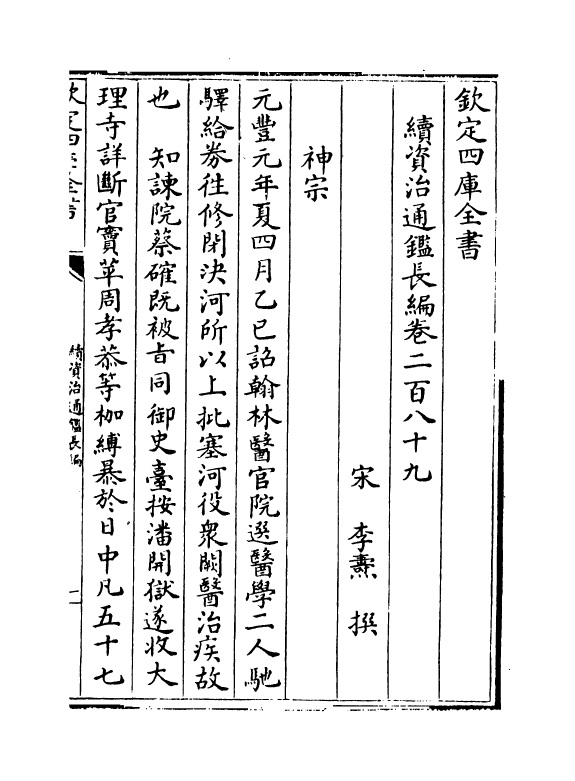 欽定四庫全書
續資治通鑑長編卷二百八十九
宋 李燾 撰
神宗
元豐元年夏四月乙巳詔翰林醫官院選醫學二人馳
驛給券徃修閉決河所以上批塞河役衆闕醫治疾故
也 知諫院蔡確既被㫖同御史臺按潘開獄遂收大
理寺詳斷官竇苹周孝恭等枷縛暴於日中凡五十七
欽定四庫全書
續資治通鑑長編
一